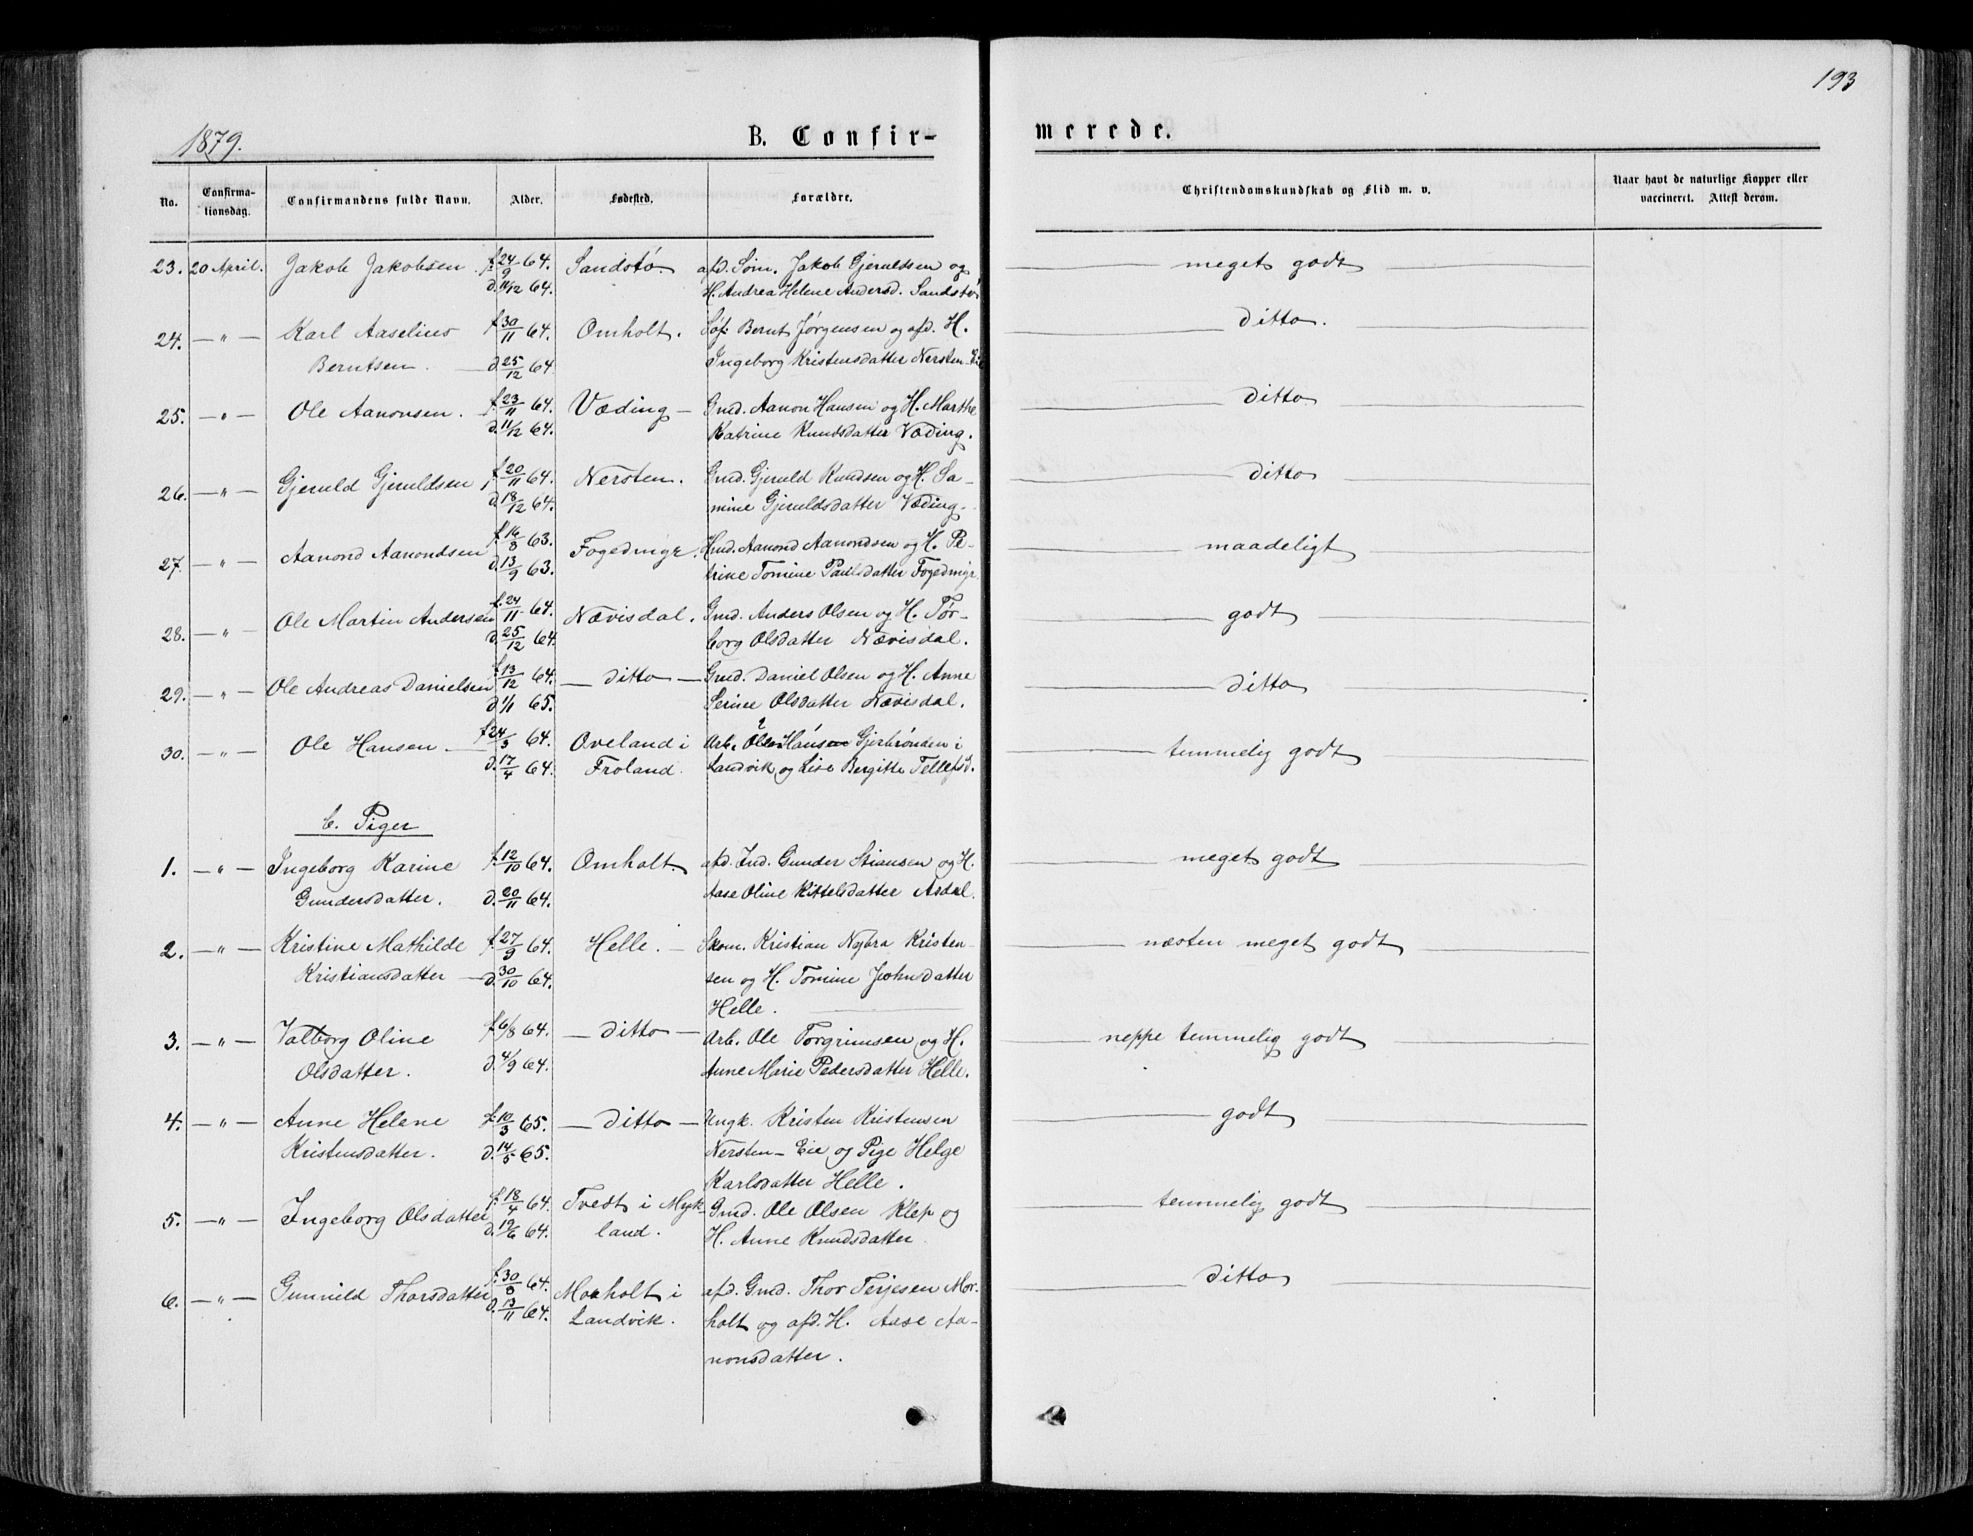 193
1879.
B. Confir-
merede.
No.
Confirma-
tionsdag.
Confirmandens fulde Navn.
Alder.
Fødested.
Forældre.
Christendomskundskab og Flid m. v.
Naar havt de naturlige Kopper eller
vaccineret. Attest derom.
23. 20 April. Jakob Jakobsen f. 24/9 64. Sandstø afd. Søm. Jakob Gjeruldsen og meget godt
d. 11/12 64. H. Andrea Helene Andersd. Sandstø
24. — " — Karl Aaselius f. 30/11 64. Omholt. Søf. Bernt Jørgensen og afd. H. ditto.
Berntsen. d. 25/12 64. Ingeborg Kristensdatter Nersten-Eie
25. — " — Ole Aanonsen. f. 23/11 64. Væding — Gmd. Aanon Hansen og H. Marthe ditto
d. 11/12 64. Katrine Knudsdatter Væding.
26. — " — Gjeruld Gjeruldsen f. 20/11 64. Nersten. Gmd. Gjeruld Knudsen og H. Sa- ditto
d. 18/12 64. mine Gjeruldsdatter Væding.
27. — " — Aanond Aanondsen f. 16/8 63. Fogedmyr. Hmd. Aanond Aanondsen og H. Pe- maadeligt
d. 13/9 63. trine Tomine Paulsdatter Fogedmyr
28. — " — Ole Martin Andersen f. 24/11 64. Nævisdal. Gmd. Anders Olsen og H. Tor- godt
d. 25/12 64. borg Olsdatter Nævisdal.
29. — " — Ole Andreas Danielsen f. 13/12 64. — ditto — Gmd. Daniel Olsen og H. Anne ditto
d. 1/1 65. Serine Olsdatter Nævisdal.
30. — " — Ole Hansen. f. 24/3 64. Oveland i Arb. Ole Hansen Gjerbrønden i temmelig godt
d. 17/4 64. Froland. Landvik og Lise Bergitte Tellefsd.
b. Piger
1. — " — Ingeborg Karine f. 12/10 64. Omholt. afd. Ind. Gunder Stiansen og H. meget godt
Gundersdatter. d. 20/11 64. Aase Oline Kittelsdatter Asdal.
2. — " — Kristine Mathilde f. 27/9 64. Helle. — Skom. Kristian Nybra Kristen- næsten meget godt
Kristiansdatter d. 30/10 64. sen og H. Tomine Johnsdatter
Helle.
3. — " — Valborg Oline f. 6/8 64. — ditto — Arb. Ole Torgrimsen og H. neppe temmelig godt
Olsdatter. d. 4/9 64. Anne Marie Pedersdatter Helle.
4. — " — Anne Helene f. 10/3 65. — ditto — Ungk. Kristen Kristensen godt
Kristensdatter. d. 14/5 65. Nersten-Eie og Pige Helge
Karlsdatter Helle.
5. — " — Ingeborg Olsdatter f. 18/4 64. Tvedt i Myk- Gmd. Ole Olsen Klep og temmelig godt
d. 19/6 64. land. H. Anne Knudsdatter
6. — " — Gunnild Thorsdatter f. 30/8 64. Morholt i afd. Gmd. Thor Terjesen Mor- ditto
d. 13/11 64. Landvik. holt og afd. H. Aase Aa-
nonsdatter.